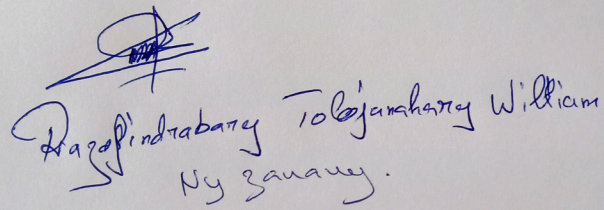 Razafindrabary Tolojanahary William
Ny zanany.